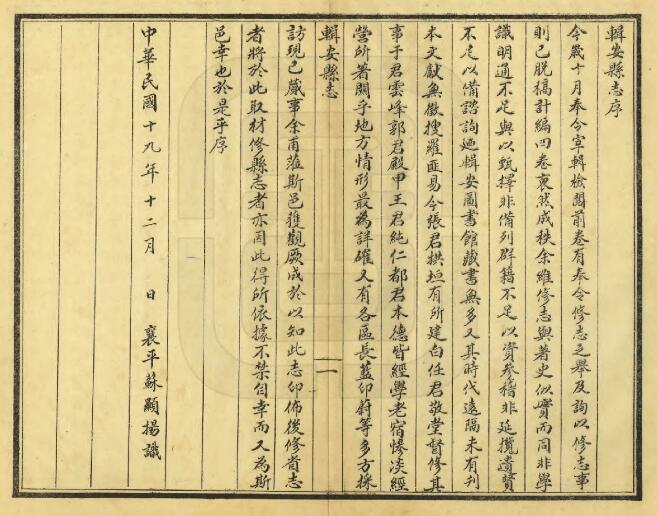 輯安縣志序
今歲十月奉令宰輯檢閱前卷有奉令修志之舉及詢以修志事
則已脫稿計編四卷裒然成秩余維修志與著史似實而同非學
識明通不足與以甄擇非備列群籍不足以資參稽非延攬遺賢
不足以備諮詢廼輯安圖書館藏書無多又其時代遠隔未有刊
本文獻無徵搜羅匪易今張君拱垣有所建白任君敬堂督修其
事于君雲峰郭君殿甲王君純仁都君本德皆經學老宿慘淡經
營所著關乎地方情形最為詳確又有各區長藍印蔚等多方採
輯安縣志
一
訪現已蕆事余甫蒞斯邑獲觀厥成於以知此志印佈後修省志
者將於此取材修縣志者亦因此得所依據不禁自幸而又為斯
邑幸也於是乎序
中華民國十九年十二月 日 襄平蘇顯揚識